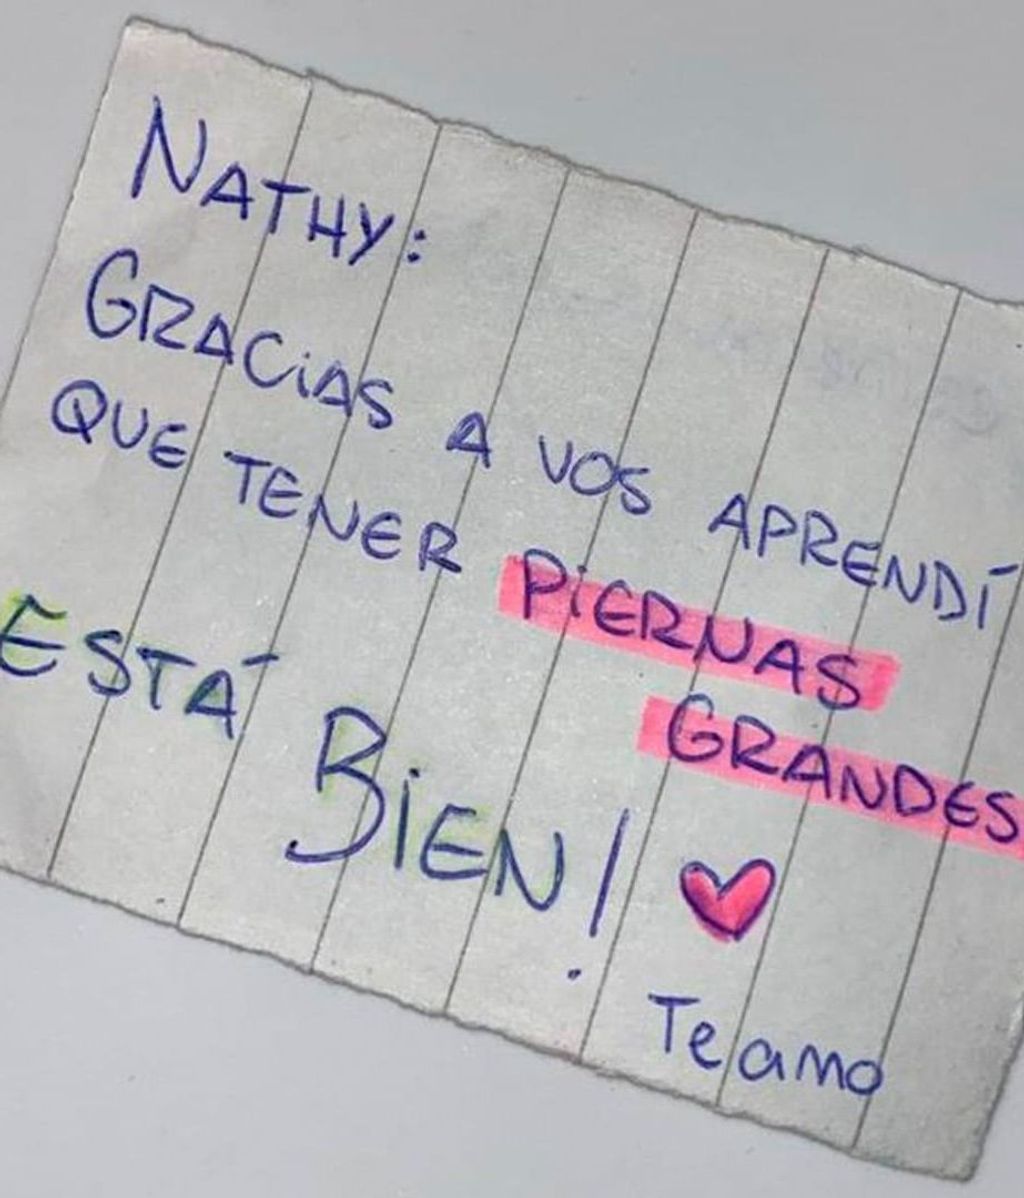 NATHY:
GRACIAS A VOS APRENDÍ
QUE TENER PIERNAS
GRANDES
ESTÁ BIEN!
Te amo